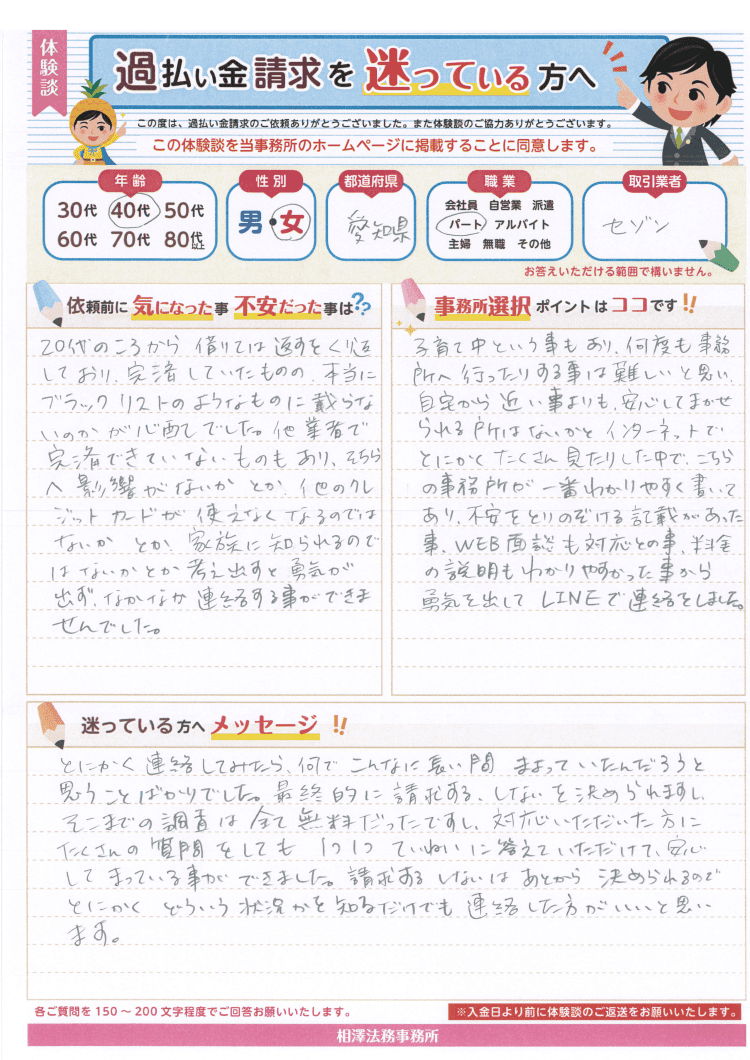 体験談
過払い金請求を迷っている方へ
この度は、過払い金請求のご依頼ありがとうございました。また体験談のご協力ありがとうございます。
この体験談を当事務所のホームページに掲載することに同意します。
年齢
30代 40代 50代
60代 70代 80代以上
性別
男・女
都道府県
愛知県
職業
会社員 自営業 派遣
パート アルバイト
主婦 無職 その他
取引業者
セゾン
お答えいただける範囲で構いません。
依頼前に気になった事 不安だった事は??
20代のころから 借りては返すをくり返
しており、完済していたものの、本当に
ブラックリストのようなものに載らな
いのかが心配でした。他業者で
完済できていないものもあり、そちら
へ影響がないかとか、他のクレ
ジットカードが使えなくなるのでは
ないかとか、家族に知られるので
はないかとか考え出すと勇気が
出ず、なかなか連絡する事ができま
せんでした。
事務所選択 ポイントはココです!!
子育て中という事もあり、何度も事務
所へ行ったりする事は難しいと思い、
自宅から近い事よりも、安心してまかせ
られる所はないかとインターネットで
とにかくたくさん見たりした中で、こちら
の事務所が一番わかりやすく書いて
あり、不安をとりのぞける記載があった
事、WEB面談も対応との事、料金
の説明もわかりやすかった事から
勇気を出してLINEで連絡をしました。
迷っている方へ メッセージ!!
とにかく連絡してみたら、何でこんなに長い間 まよっていたんだろうと
思うことばかりでした。最終的に請求する、しないを決められますし、
そこまでの調査は全て無料だったですし、対応いただいた方に
たくさんの質問をしても1つ1つていねいに答えていただけて、安心
してまっている事ができました。請求するしないはあとから決められるので
とにかくどういう状況かを知るだけでも連絡した方がいいと思い
ます。
各ご質問を150～200文字程度でご回答お願いいたします。
※入金日より前に体験談のご返送をお願いいたします。
相澤法務事務所